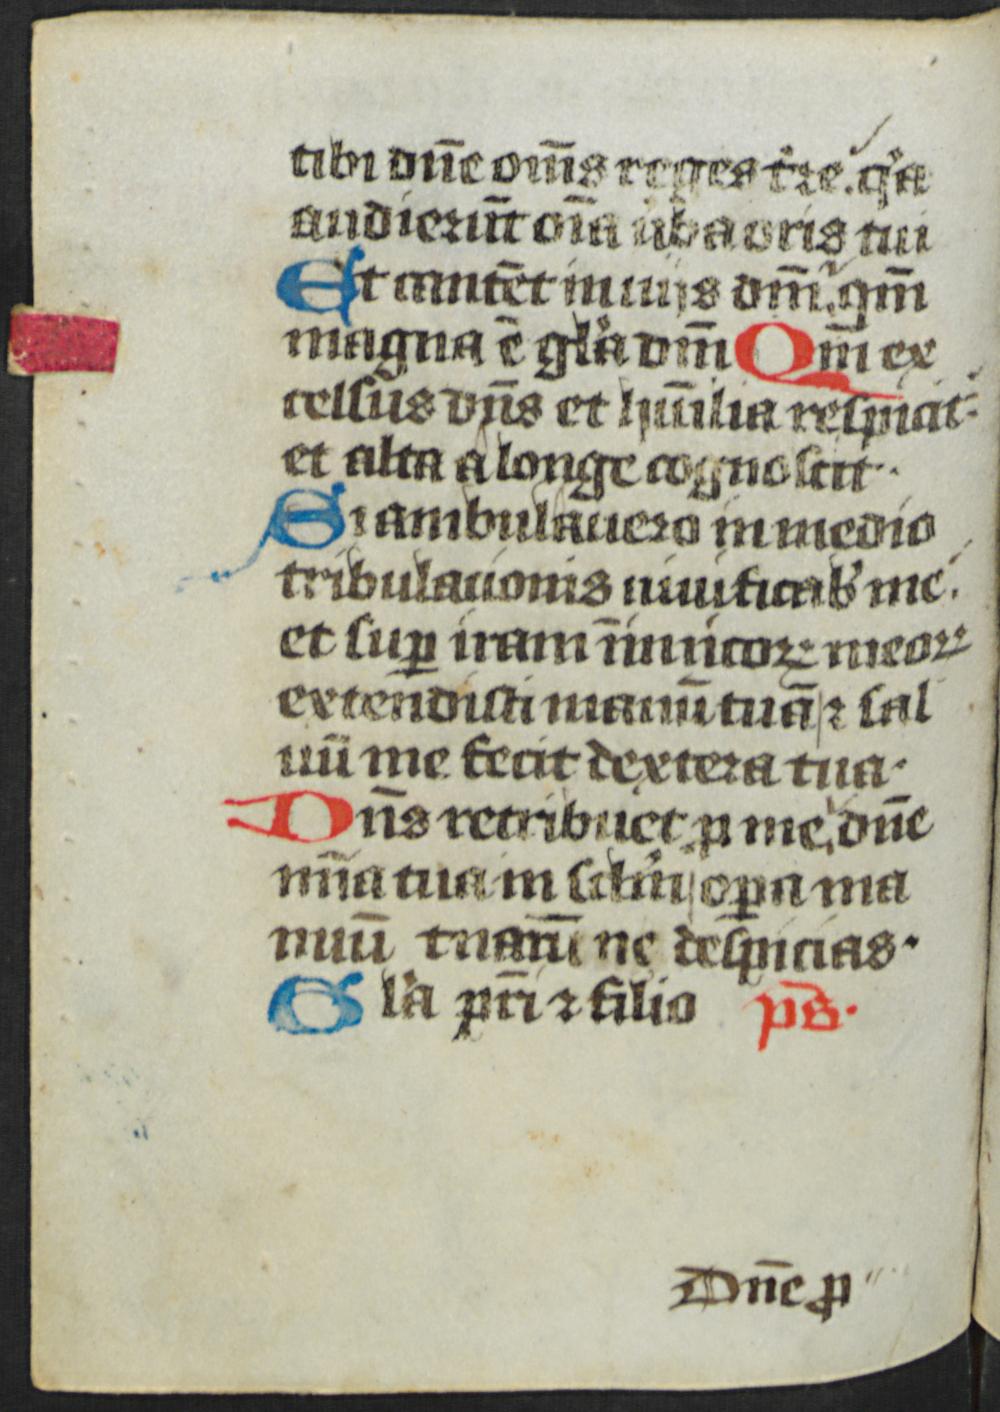 tibi dn̄e om̄s reges t̄re. qͥa
audierūt oīa ūba oris tui
Et cantēt in uijs dn̄i. qm̄
magna ē glͥa dn̄i Qm̄ ex
celsus dn̄s et hūilia respicit·
et alta a longe cognoscit·
Si ambulauero in medio
tribulacionis uiuificabͥ me.
et suꝑ iram īimicoꝝ meoꝝ
extendisti manū tuā ⁊ sal
uū me fecit dextera tua·
Dn̄s retribuet ꝓ me, dn̄e
mīa tua in sclm̄ oꝑa ma
nuū tuaꝝ ne despicias·
Glͥa pr̄i ⁊ filio ps̄·
Dn̄e ꝓ